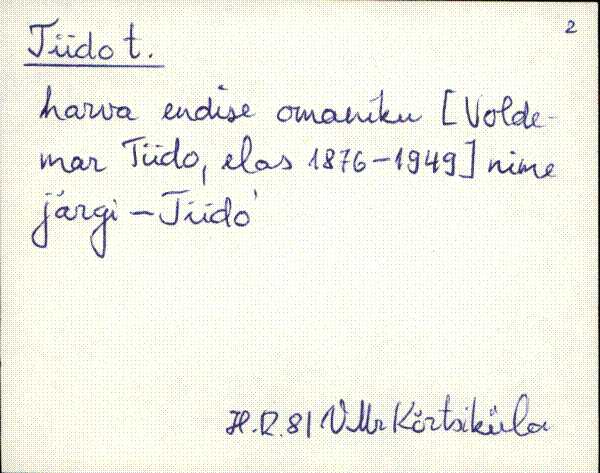 2
Tiido t.
harva endise omaniku [Volde-
mar Tiido, elas 1876-1949] nime
järgi - Tiido
H.R.81 VMr Körtsiküla